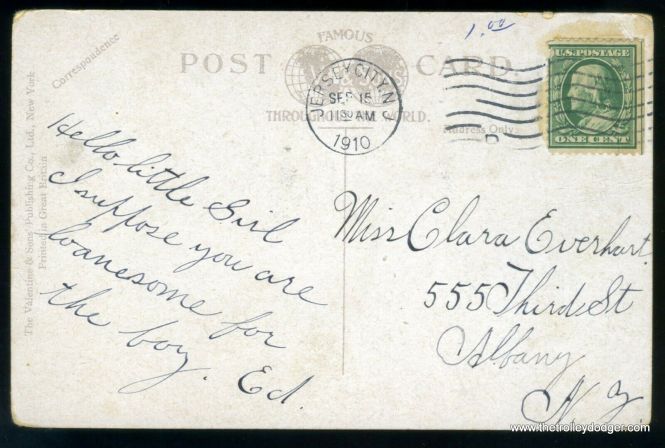 1.00
FAMOUS
POST CARD.
THROUGHOUT THE WORLD.
Correspondence
Address Only
The Valentine & Sons' Publishing Co., Ltd., New York
Printed in Great Britain
JERSEY CITY N.J.
SEP 15
11 AM
1910
U.S. POSTAGE
ONE CENT
Hello little Girl
I suppose you are
loanesome for
the boy. Ed.
Miss Clara Everhart
555 Third St
Albany
N Y
www.thetrolleydodger.com